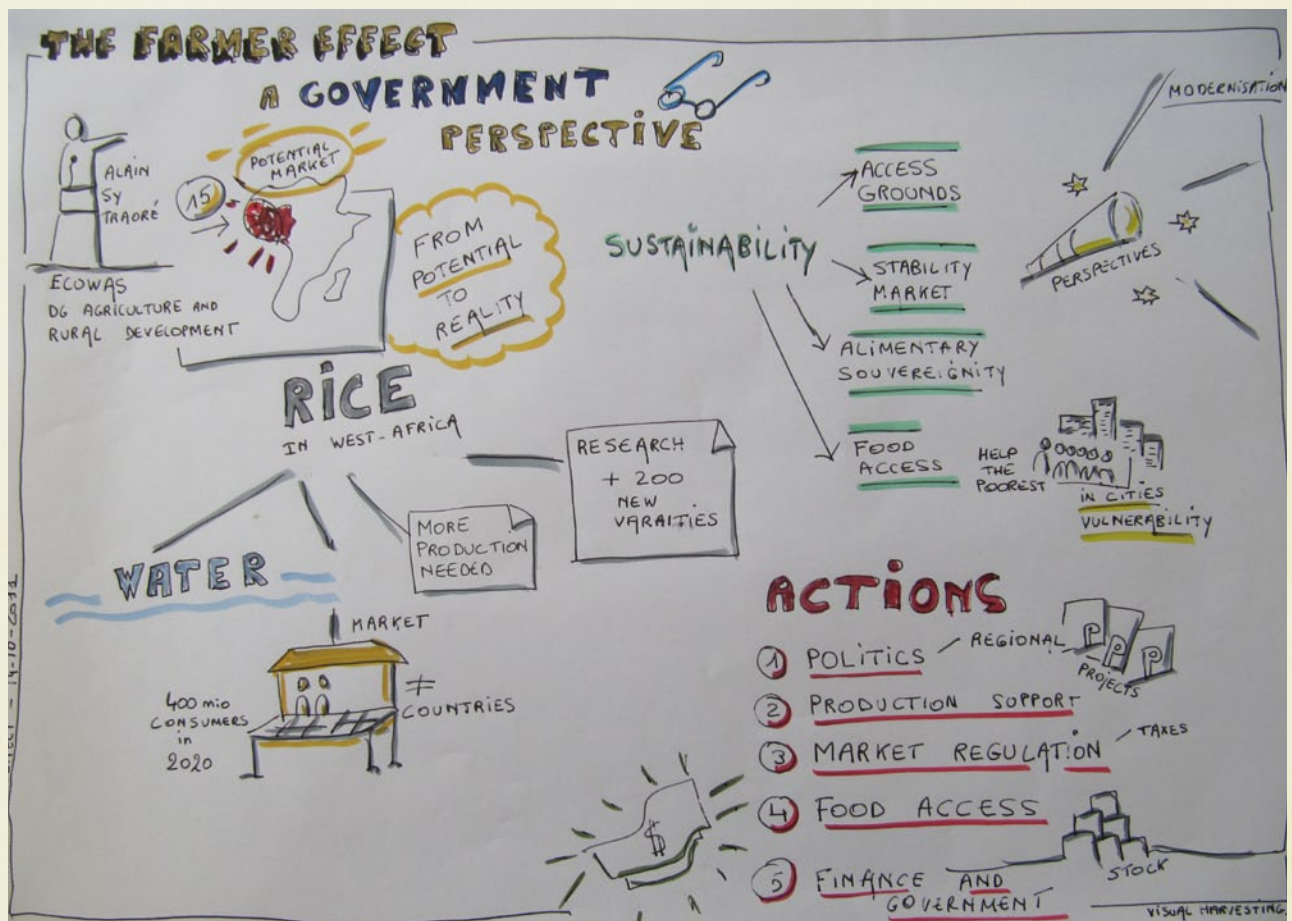 THE FARMER EFFECT
A GOVERNMENT
PERSPECTIVE
ALAIN
SY
TRAORÉ
ECOWAS
DG AGRICULTURE AND
RURAL DEVELOPMENT
15
POTENTIAL
MARKET
FROM
POTENTIAL
TO
REALITY
RICE
IN WEST-AFRICA
WATER
MORE
PRODUCTION
NEEDED
RESEARCH
+ 200
NEW
VARAITIES
MARKET
≠
COUNTRIES
400 mio
CONSUMERS
in
2020
SUSTAINABILITY
ACCESS
GROUNDS
STABILITY
MARKET
ALIMENTARY
SOUVEREIGNITY
FOOD
ACCESS
HELP
THE
POOREST
IN CITIES
VULNERABILITY
MODERNISATION
PERSPECTIVES
ACTIONS
1 POLITICS
REGIONAL
P P P
PROJECTS
2 PRODUCTION SUPPORT
3 MARKET REGULATION
TAXES
4 FOOD ACCESS
STOCK
5 FINANCE AND
GOVERNMENT
$
VISUAL HARVESTING